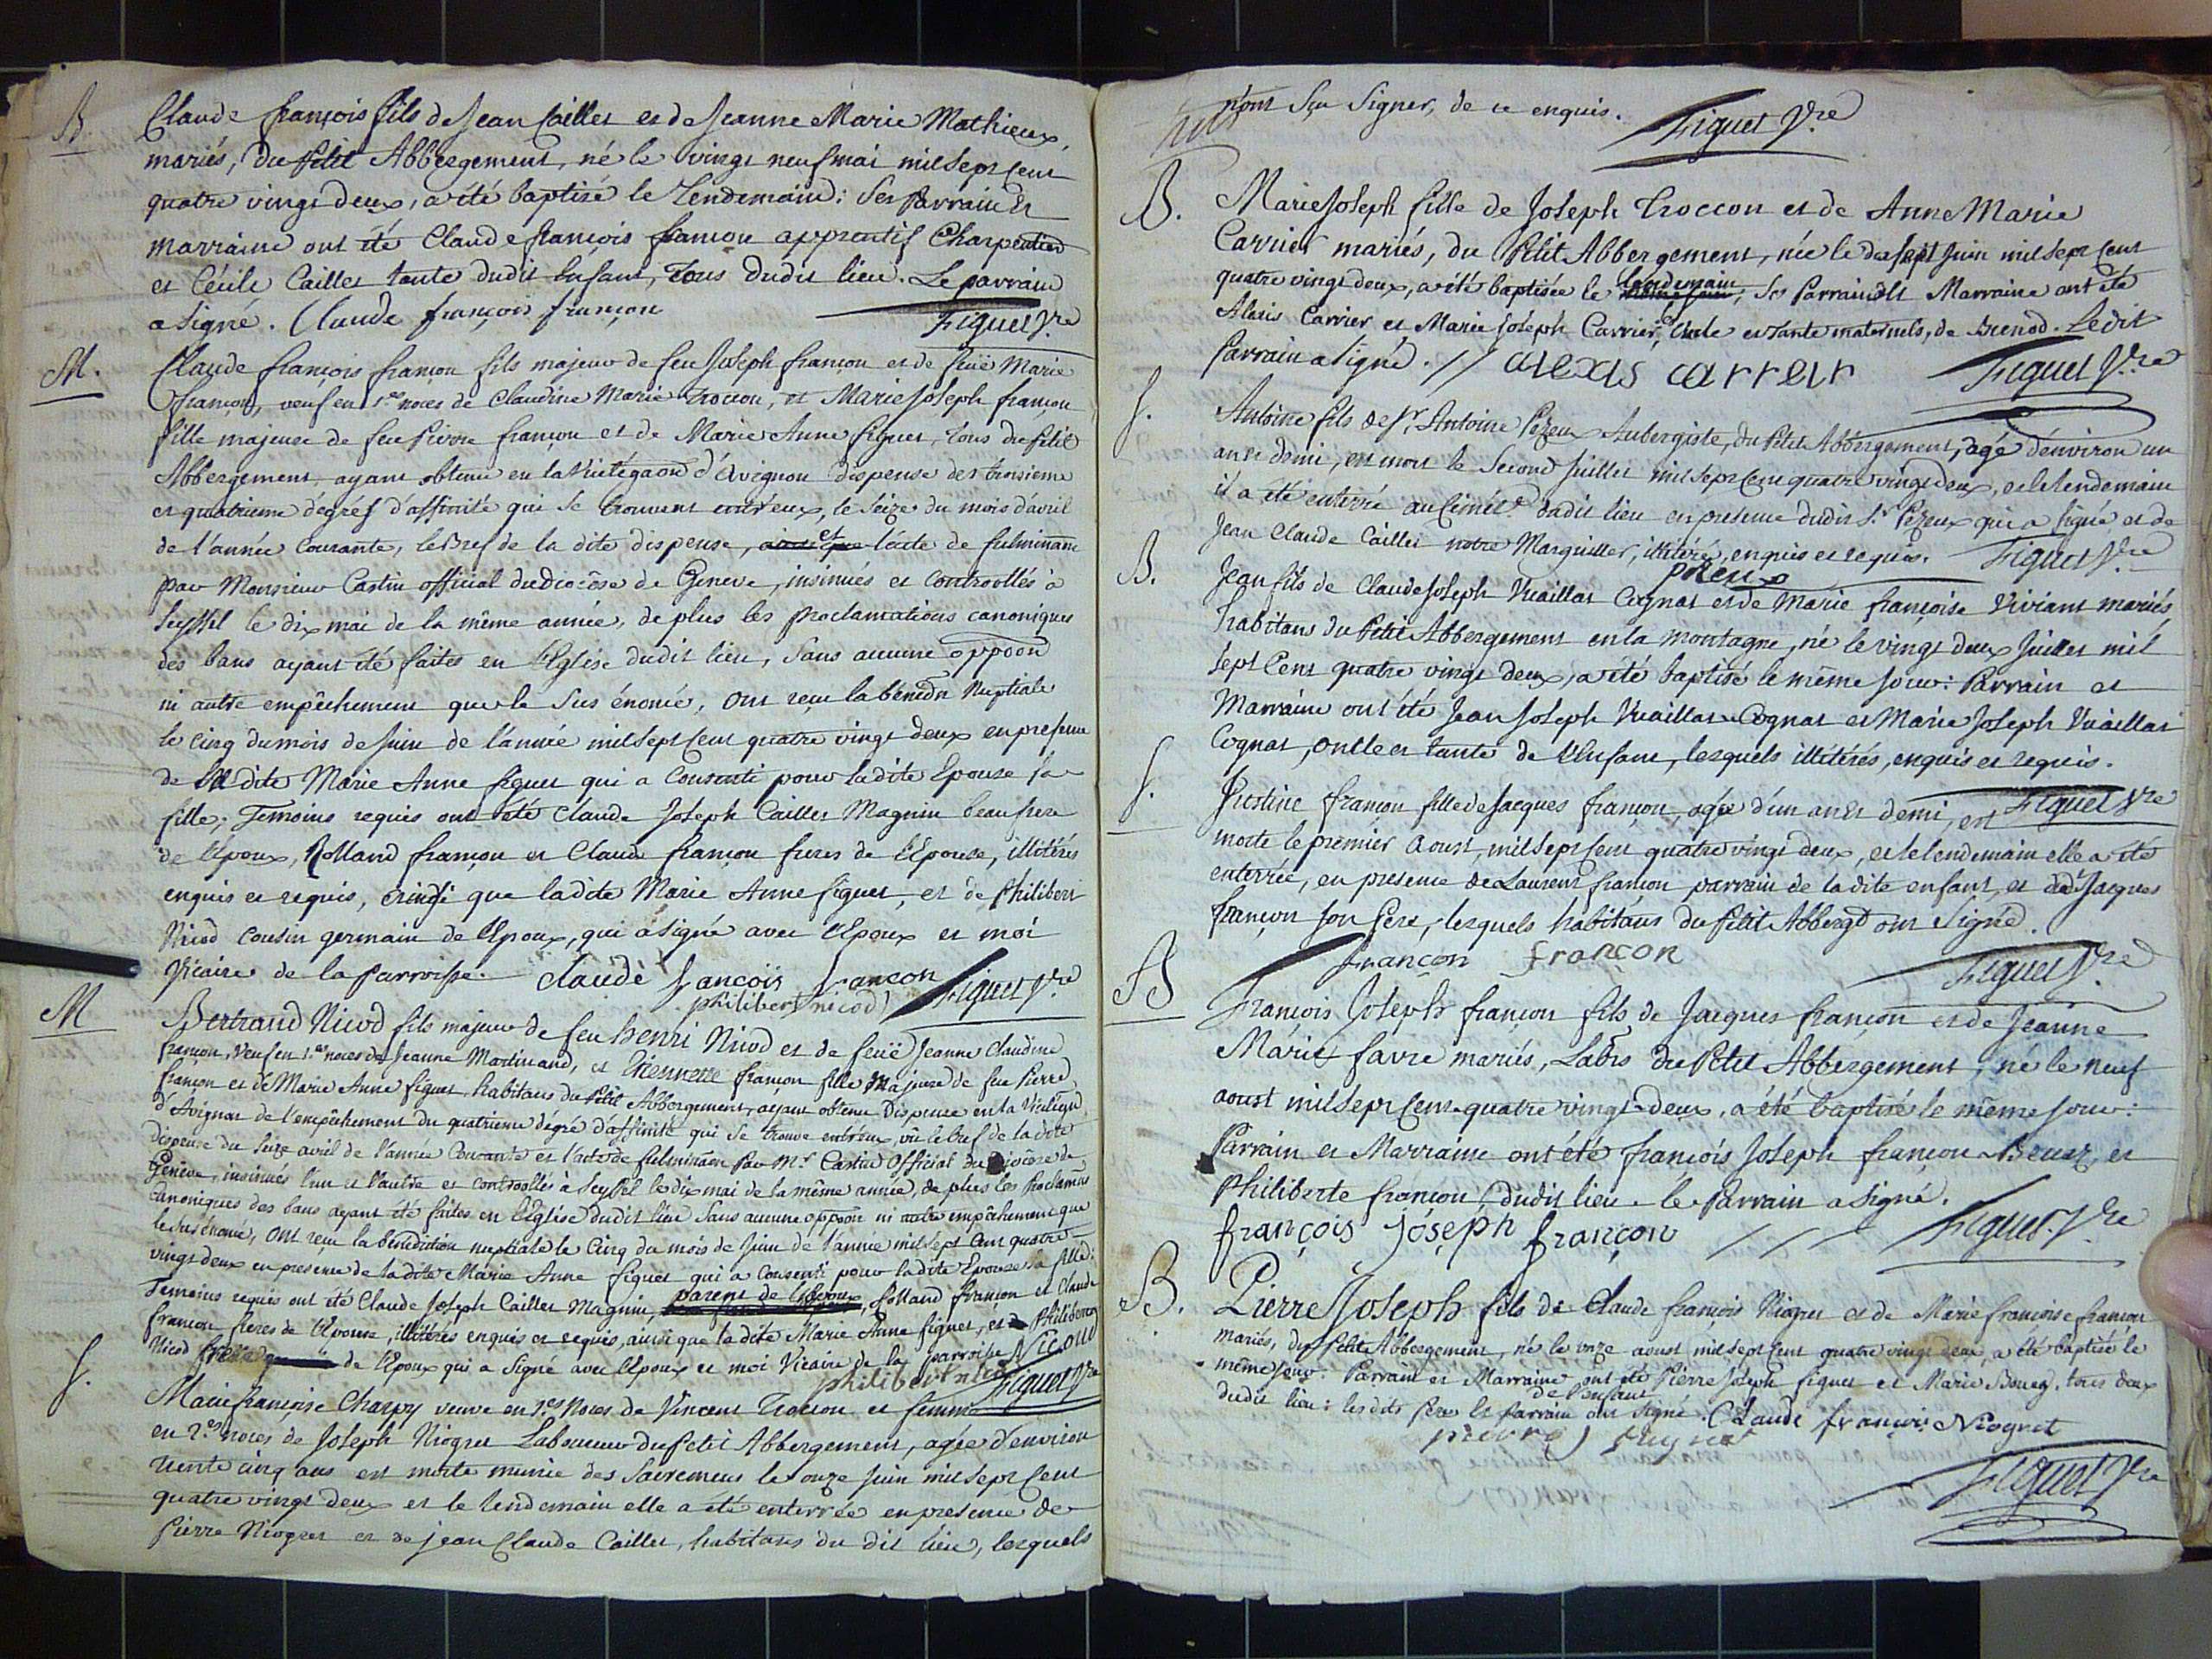 B.
Claude françois fils de Jean Caillet et de Jeanne Marie Mathieux,
mariés, du Petit Abbergement, né le vingt neuf mai mil sept cent
quatre vingt deux, a été baptisé le lendemain: Ses Parrain et
marraine ont été Claude françois françon apprentif Charpentier
et Cécile Caillet tante dudit Enfant, Tous dudit lieu. Le parrain
a signé. Claude françois françon Figuet Vre
M.
Claude françois françon fils majeur de feu Joseph françon et de feuë Marie
françon, veuf en 1.es noces de Claudine Marie Troccon, et Marie Joseph françon
fille majeure de feu Pierre françon et de Marie Anne figuet, Tous du Petit
Abbergement, ayant obtenu en la Vicelégaon d'Avignon dispense des troisieme
et quatrieme dégrés d'affinité qui se trouvent entr'eux, le seize du mois d'avril
de l'année courante, le Bref de la dite dispense, et l'acte de fulminaon
par Monsieur Castin official du diocèse de Geneve, insinués et controollés à
Seyssel le dix mai de la même année, de plus les proclamations canoniques
des bans ayant été faites en l'Eglise dudit lieu, sans aucune oppoon
ni autre empêchement que le sus énoncé, ont reçu la bénédn Nuptiale
le cinq du mois de Juin de l'année mil sept cent quatre vingt deux en presence
de la dite Marie Anne figuet qui a consenti pour ladite Epouse sa
fille; Temoins requis ont été Claude Joseph Caillet Magnin beau frere
de l'Epoux, Rolland françon et Claude françon freres de l'Epouse, illitérés
enquis et requis, ainsi que ladite Marie Anne figuet, et de Philibert
Nicod cousin germain de l'Epoux, qui a signé avec l'Epoux et moi
Vicaire de la Parroisse. claude françois françon Figuet Vre
philibert nicod
M
Bertrand Nicod fils majeur de feu henri Nicod et de feuë Jeanne Claudine
françon, Veuf en 1.es noces de Jeanne Martinand, et Etiennette françon fille majeure de feu Pierre
françon et de Marie Anne figuet, habitans du Petit Abbergement, ayant obtenu Dispense en la Vicelégaon
d'Avignon de l'empêchement du quatrieme dégré d'affinité qui se trouve entr'eux, vû le bref de la dite
dispense du seize avril de l'année Courante et l'acte de fulminaon Par Mr Castin Official du diocèse de
Geneve, insinués l'un et l'autre et controollés à Seyssel le dix mai de la même année, de plus les Proclamons
canoniques des bans ayant été faites en l'Eglise dudit lieu sans aucune oppoon ni autre empêchement que
le sus énoncé, ont reçu la bénédiction nuptiale le cinq du mois de Juin de l'année mil sept cent quatre
vingt deux en presence de la dite Marie Anne figuet qui a consenti pour ladite Epouse sa fille:
Temoins requis ont été Claude Joseph Caillet Magnin, parent de l'Epoux, Rolland françon et Claude
françon freres de l'Epouse, illitérés enquis et requis, ainsi que la dite Marie Anne figuet, et Philibert
Nicod frere de l'Epoux qui a signé avec l'Epoux et moi Vicaire de la parroisse Nicoud
philibert nicod Figuet Vre
f.
Marie françoise Charpy veuve en 1.es Noces de Vincent Troccon et femme
en 2.es noces de Joseph Niogret Laboureur du Petit Abbergement, agée d'environ
trente cinq ans est morte munie des Sacremens le onze Juin mil sept cent
quatre vingt deux et le lendemain elle a été enterrée en presence de
Pierre Niogret et de Jean Claude Caillet, habitans du dit lieu, lesquels
n'ont sçu signer, de ce enquis. Figuet Vre
B.
Marie Joseph fille de Joseph Troccon et de Anne Marie
Carrier mariés, du Petit Abbergement, née le dix sept Juin mil sept cent
quatre vingt deux, a été baptisée le lendemain; Ses Parrain et Marraine ont été
Alexis Carrier et Marie Joseph Carrier, Oncle et tante maternels, de Brenod. Ledit
Parrain a signé. // alexis carreir Figuet Vre
f.
Antoine fils de Sr. Antoine Pezeux Aubergiste, du Petit Abbergement, agé d'environ un
an et demi, est mort le second Juillet mil sept cent quatre vingt deux, et le lendemain
il a été enterré au Cimétre dudit lieu en presence dudit Sr Pezeux qui a signé et de
Jean Claude Caillet notre Marguiller, illitéré, enquis et requis. Figuet Vre
pezeux
B.
Jean fils de Claude Joseph Vuaillat Cognat et de Marie françoise Viviant mariés,
habitans du Petit Abbergement en la montagne, né le vingt deux Juillet mil
sept Cent quatre vingt deux, a été baptisé le même jour: Parrain et
Marraine ont été Jean Joseph Vuaillat Cognat et Marie Joseph Vuaillat
Cognat, oncle et tante de l'Enfant, lesquels illitérés, enquis et requis.
Figuet Vre
f.
Justine françon fille de Jacques françon, agée d'un an et demi, est
morte le premier Aoust, mil sept cent quatre vingt deux, et le lendemain elle a été
enterrée, en presence de Laurent françon parrain de la dite enfant, et de Jacques
françon son Pere, lesquels habitans du Petit Abbergt ont signé.
françon françon Figuet Vre
B
François Joseph françon fils de Jacques françon et de Jeanne
Marie favre mariés, Labrs du Petit Abbergement, né le neuf
aoust mil sept cent quatre vingt deux, a été baptisé le même jour:
Parrain et Marraine ont été françois Joseph françon Beuaz, et
Philiberte françon, dudit lieu. le Parrain a signé.
françois joseph françon // Figuet Vre
B.
Pierre Joseph fils de Claude françois Niogret et de Marie françoise françon
mariés, du Petit Abbergement, né le onze aoust mil sept cent quatre vingt deux, a été baptisé le
même jour. Parrain et Marraine ont été Pierre Joseph figuet et Marie , tous deux
dudit lieu: les dits Pere de l'enfant et Parrain ont signé. Claude françois Niogret
pierre
Figuet Vre